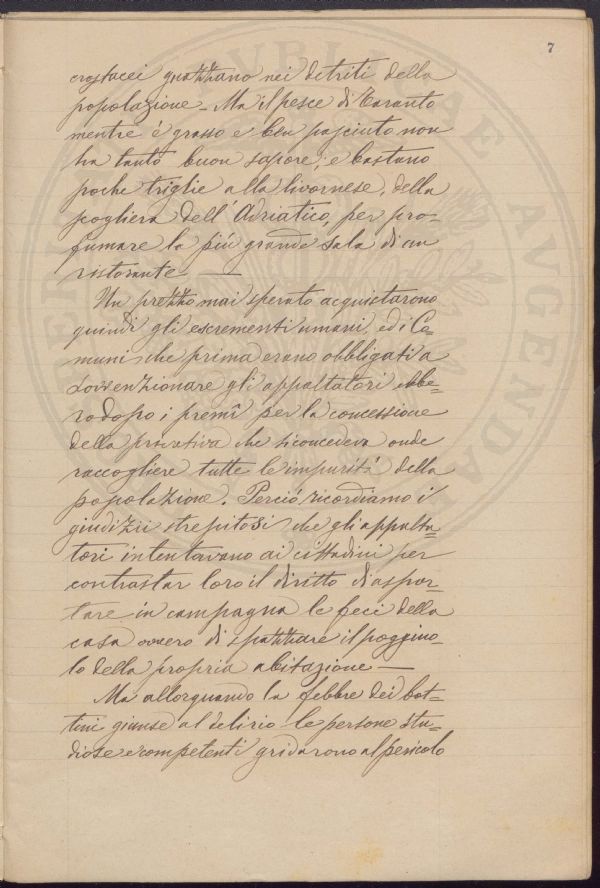 7
crostacei guazzano nei detriti della
popolazione - Ma il pesce di Taranto
mentre è grasso e ben pasciuto non
ha tanto buon sapore; e bastano
poche triglie alla livornese, della
scogliera dell'Adriatico, per pro-
fumare la più grande sala di un
ristorante —
Un prezzo mai sperato acquistarono
quindi gli escrementi umani, ed i Co-
muni che prima erano obbligati a
sovvenzionare gli appaltatori ebbe-
ro dopo i premî per la concessione
della privativa che si concedeva onde
raccogliere tutte le impurità della
popolazione. Perciò ricordiamo i
giudizii strepitosi che gli appalta-
tori intentavano ai cittadini per
contrastar loro il diritto di aspor-
tare in campagna le feci della
casa ovvero di spazzare il poggiuo-
lo della propria abitazione —
Ma allorquando la febbre dei bot-
tini giunse al delirio le persone stu-
diose e competenti gridarono al pericolo